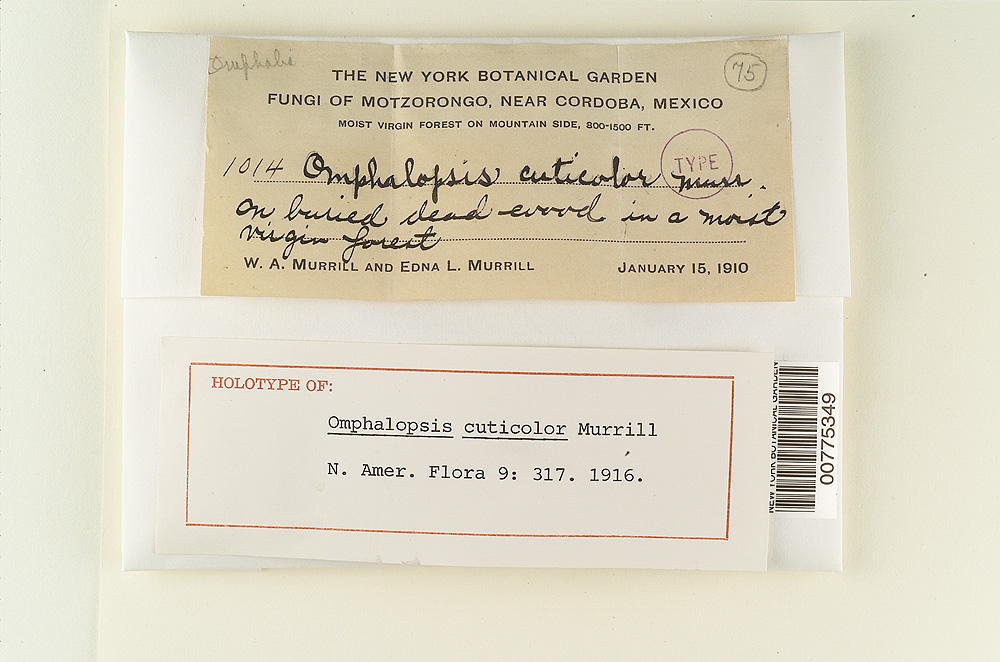 Omphalis
75
THE NEW YORK BOTANICAL GARDEN
FUNGI OF MOTZORONGO, NEAR CORDOBA, MEXICO
MOIST VIRGIN FOREST ON MOUNTAIN SIDE, 800-1500 FT.
TYPE
1014 Omphalopsis cuticolor Murr.
on buried dead wood in a moist
virgin forest
W. A. MURRILL AND EDNA L. MURRILL JANUARY 15, 1910
HOLOTYPE OF:
Omphalopsis cuticolor Murrill
N. Amer. Flora 9: 317. 1916.
NEW YORK BOTANICAL GARDEN
00775349